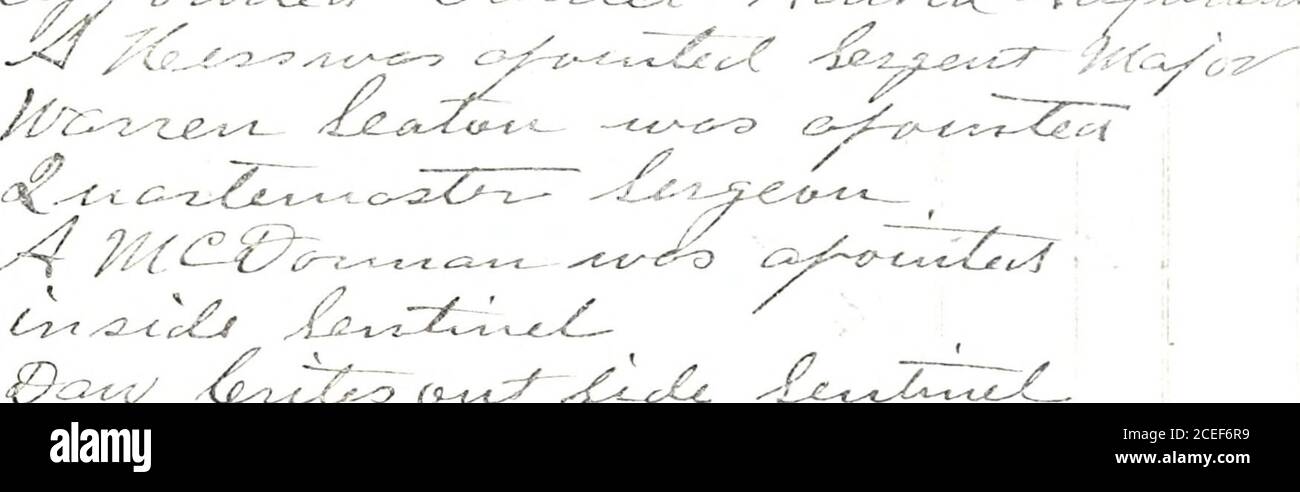 A Hess was apointed Sergent Major
Warren Seaton was apointed
Quartemaster Sergeon
A McDonnan was apointed
inside Sentinel
Dan Crites out side Sentinel
alamy
Image ID: 2CEF6R9
www.alamy.com